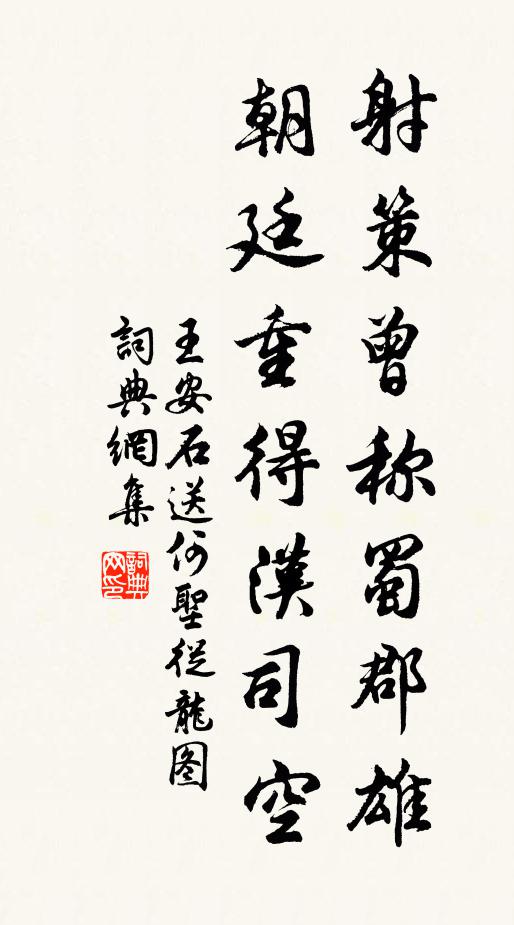 射策曾称蜀郡雄
朝廷重得漢司空
王安石送何聖從龍图
詞典網集
詞典
网印